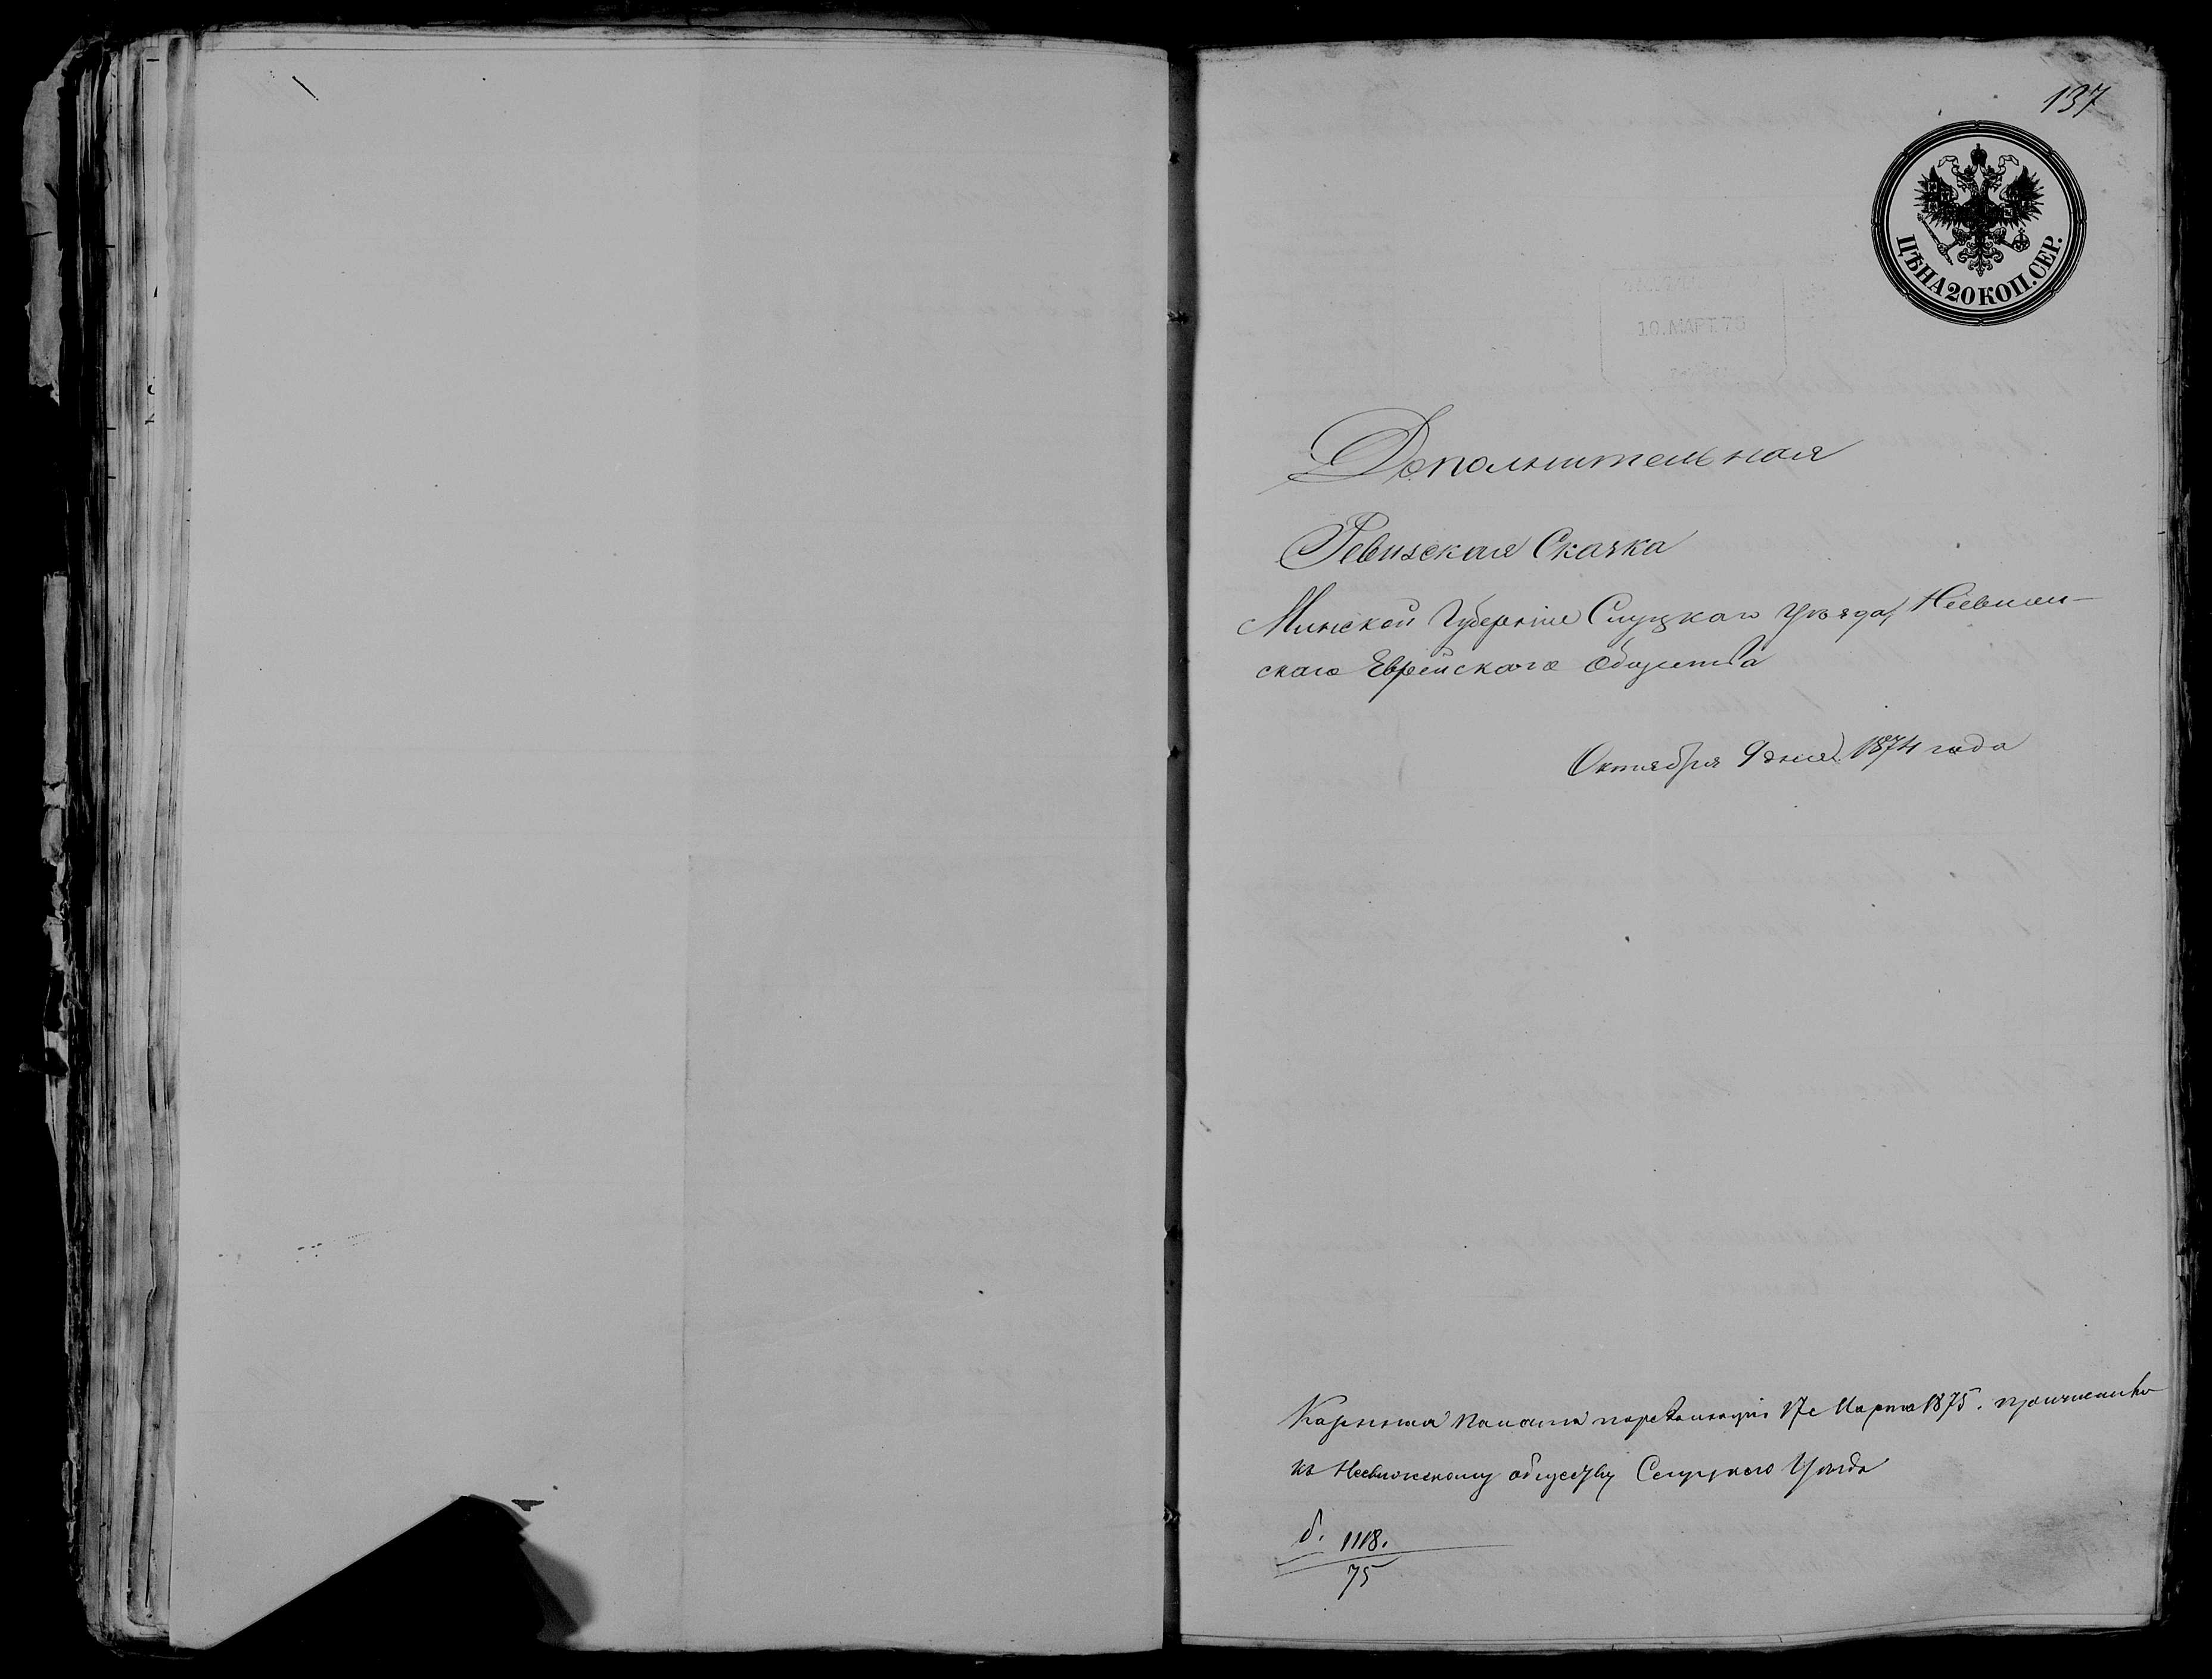 137
ЦѢНА 20 КОП. СЕР.
10.МАРТ.7
Дополнительная
Ревизская Сказка
Минской Губерніи Слуцкаго Уѣзда, Несвиж-
скаго Еврейскаго Общества
Октября 9 дня 1874 года
Казенная Палата 17 Марта 1875. причислила
къ Несвижскому обществу Слуцкаго Уѣзда
б. 1118.
75